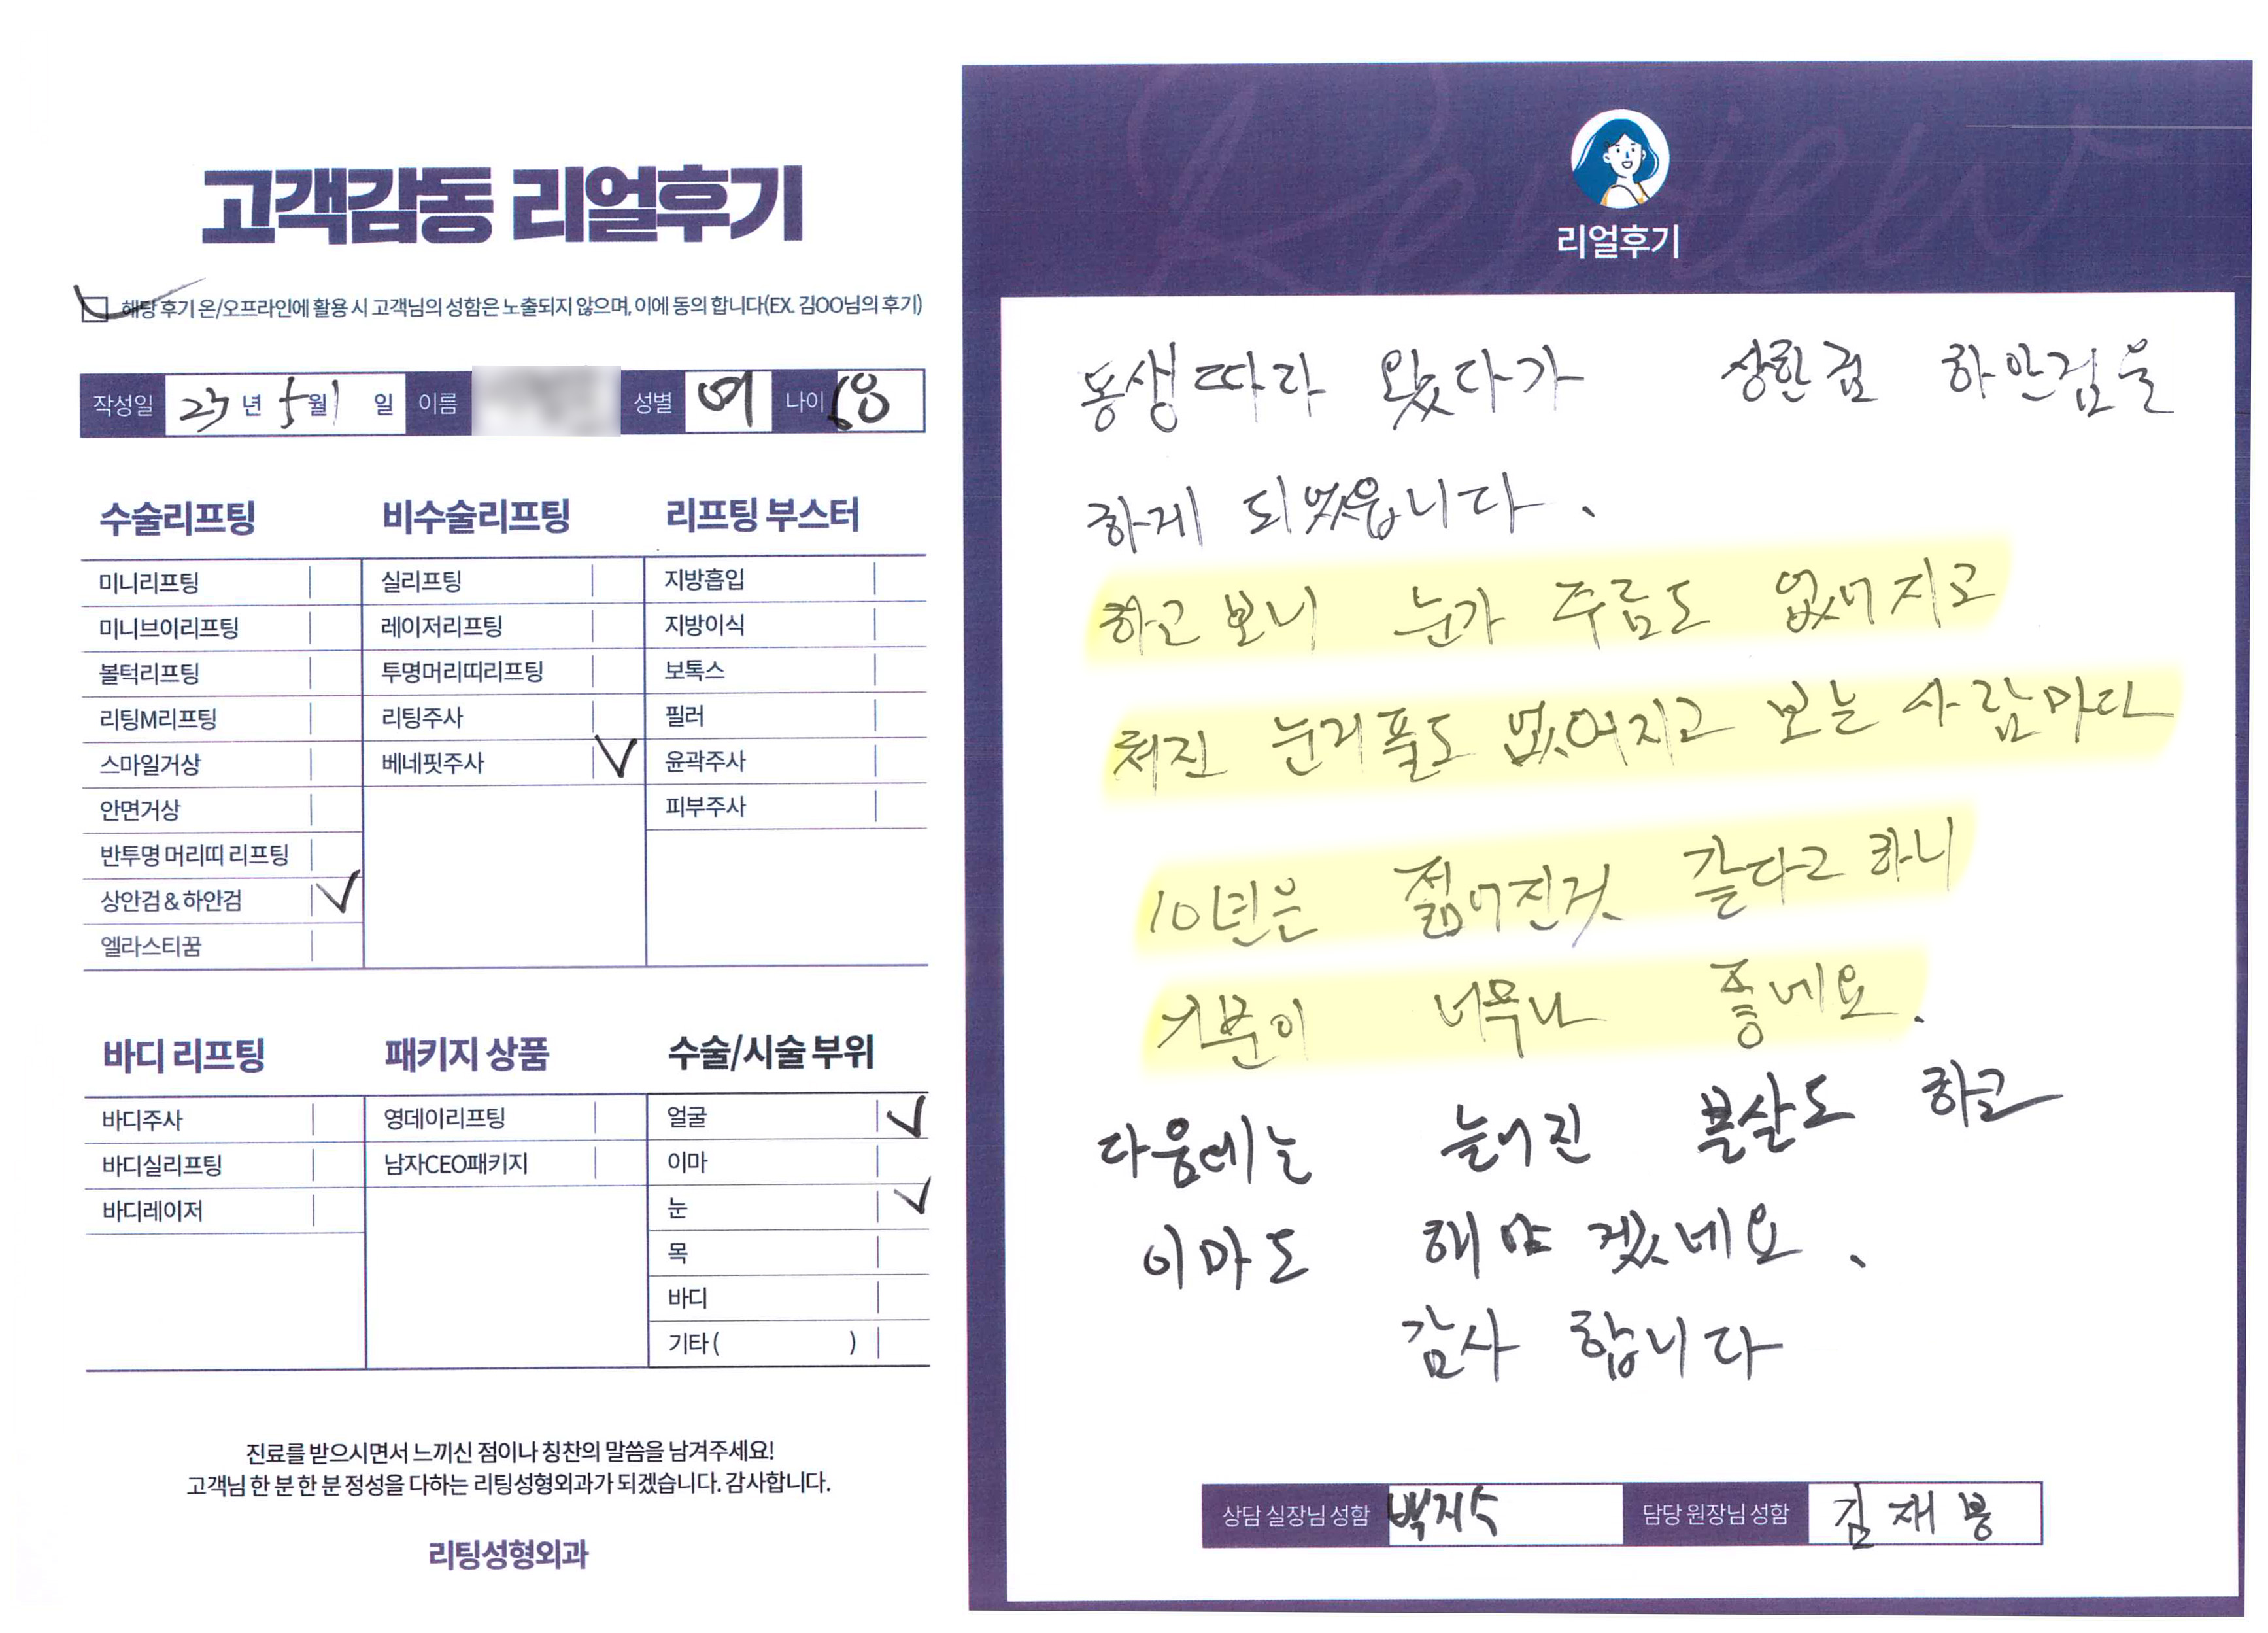 고객감동 리얼후기
해당 후기 온/오프라인에 활용 시 고객님의 성함은 노출되지 않으며, 이에 동의 합니다(EX. 김OO님의 후기)
작성일 23년 5월 1 일 이름 성별 여 나이 68
수술리프팅
미니리프팅
미니브이리프팅
볼턱리프팅
리팅M리프팅
스마일거상
안면거상
반투명 머리띠 리프팅
상안검 & 하안검 V
엘라스티꿈
비수술리프팅
실리프팅
레이저리프팅
투명머리띠리프팅
리팅주사
베네핏주사 V
리프팅 부스터
지방흡입
지방이식
보톡스
필러
윤곽주사
피부주사
바디 리프팅
바디주사
바디실리프팅
바디레이저
패키지 상품
영데이리프팅
남자CEO패키지
수술/시술 부위
얼굴 V
이마
눈 V
목
바디
기타 ( )
진료를 받으시면서 느끼신 점이나 칭찬의 말씀을 남겨주세요!
고객님 한 분 한 분 정성을 다하는 리팅성형외과가 되겠습니다. 감사합니다.
리팅성형외과
Review
리얼후기
동생따라 왔다가 상한검 하안검을
하게 되었읍니다.
하고 보니 눈가 주름도 없어지고
쳐진 눈꺼풀도 없어지고 보는 사람마다
10년은 젊어진것 같다고 하니
기분이 너무나 좋네요.
다음에는 늘어진 볼살도 하고
이마도 해야 겠네요.
감사 합니다
상담 실장님 성함 백지수 담당 원장님 성함 김재봉